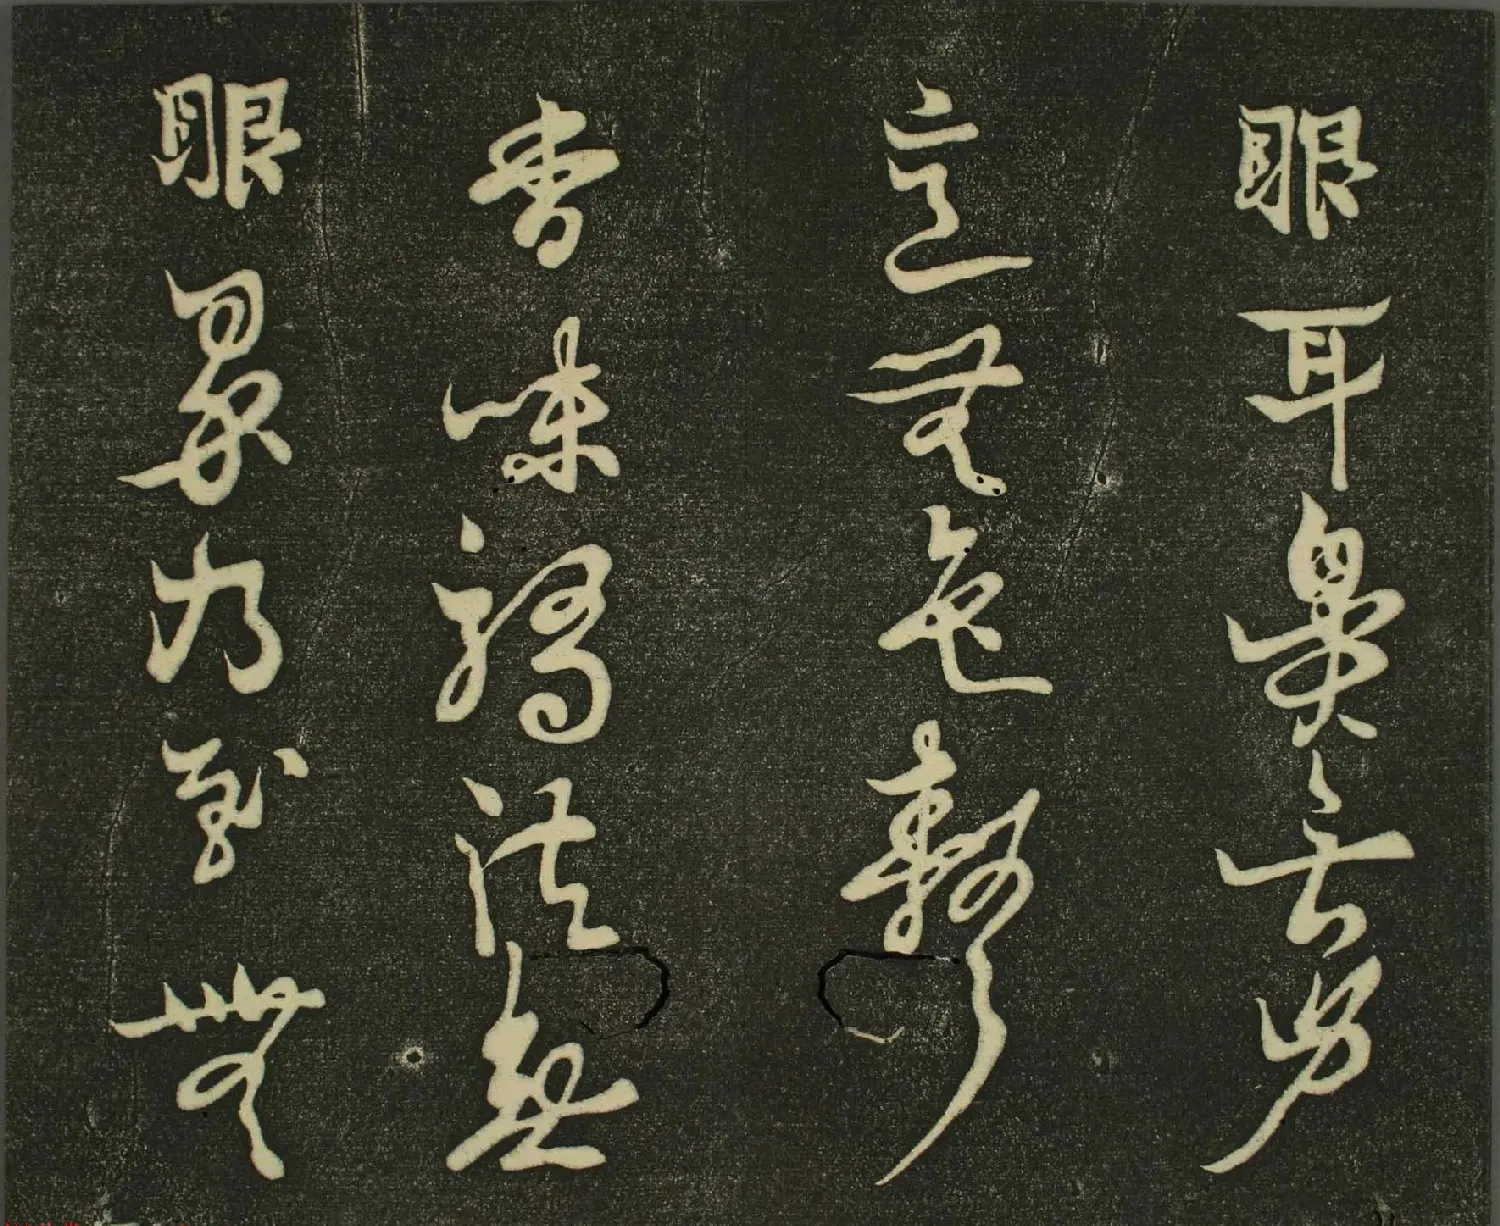 眼耳鼻舌身
意無色聲
香味觸法無
眼界乃至無